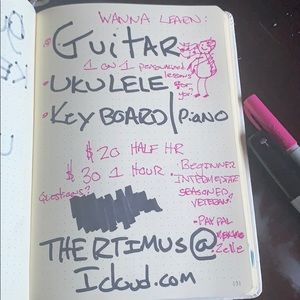 WANNA LEARN:
GUITAR
1 ON 1 PERSONALIZED
lessons
for
you.
UKULELE
KEYBOARD/PIANO
$20 HALF HR
$30 1 HOUR
Questions?
• BEGINNER
INTERMEDIATE
SEASONED
VETERAN?
• PAYPAL
• Venmo
• Zelle
THERTIMUS@
ICloud.com